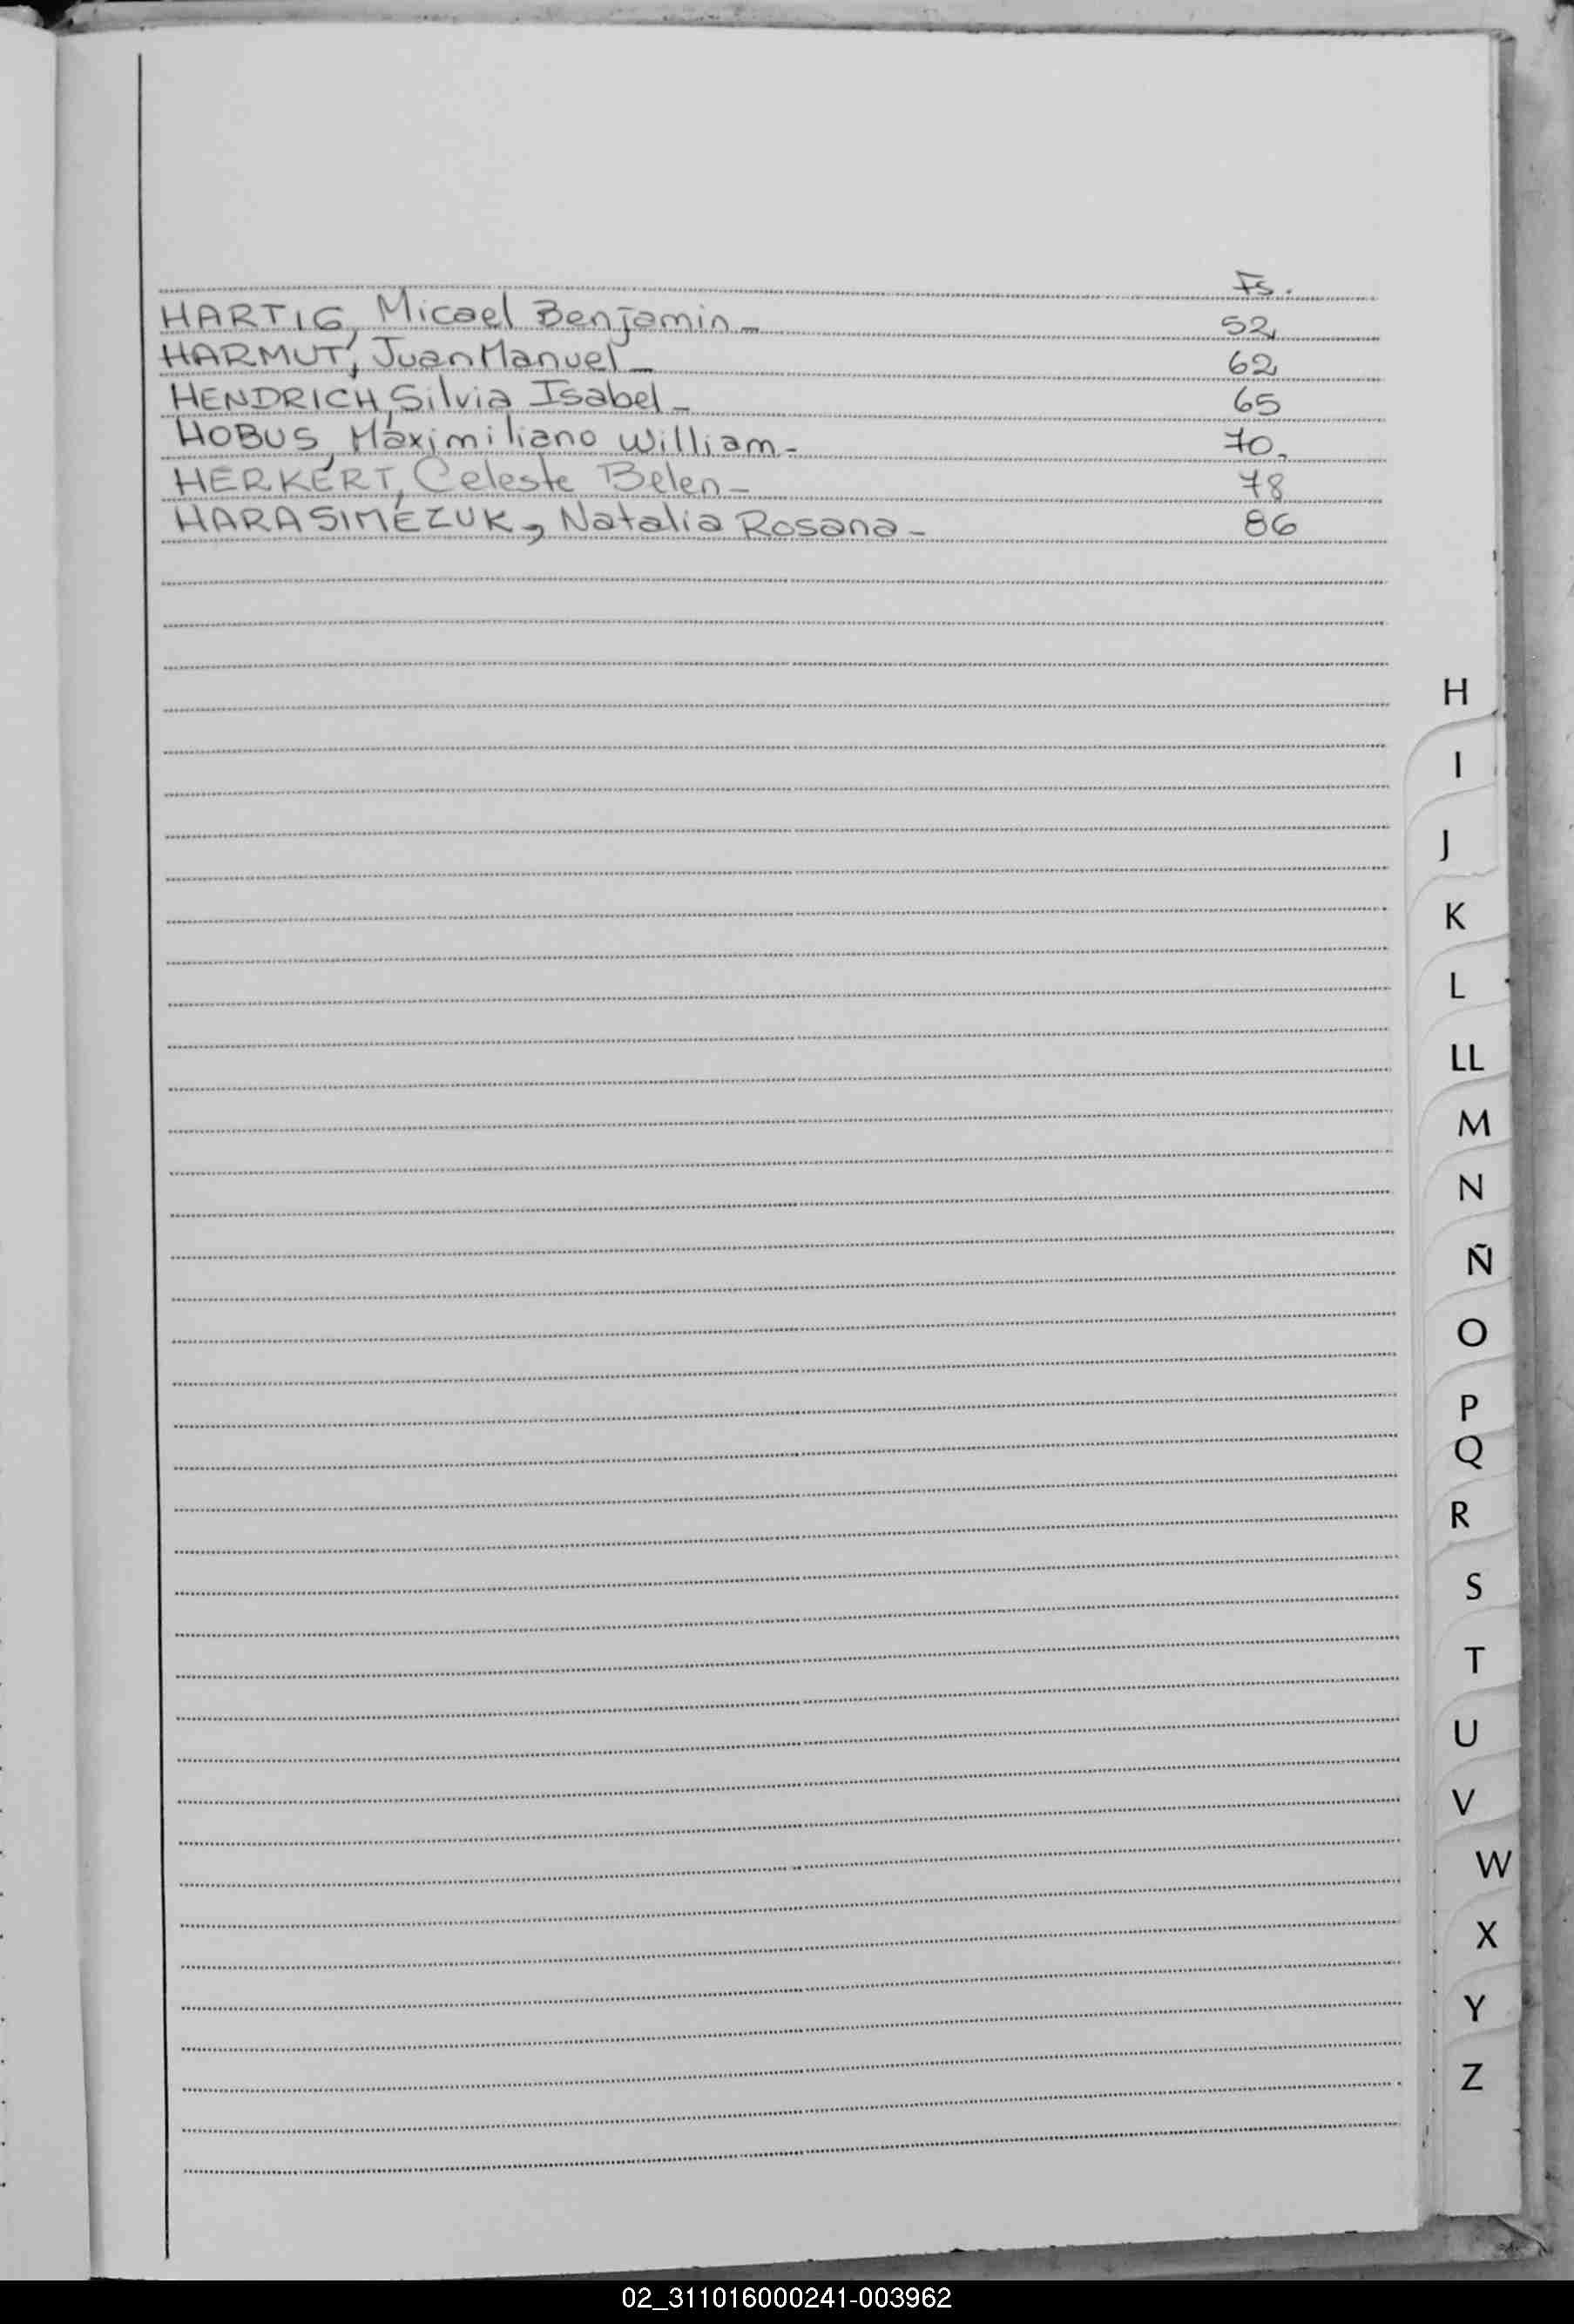 Fs.
HARTIG, Micael Benjamin - 52
HARMUT, Juan Manuel - 62
HENDRICH, Silvia Isabel - 65
HOBUS, Maximiliano William - 70
HERKERT, Celeste Belen - 78
HARASIMEZUK, Natalia Rosana - 86
H
I
J
K
L
LL
M
N
Ñ
O
P
Q
R
S
T
U
V
W
X
Y
Z
02_311016000241-003962